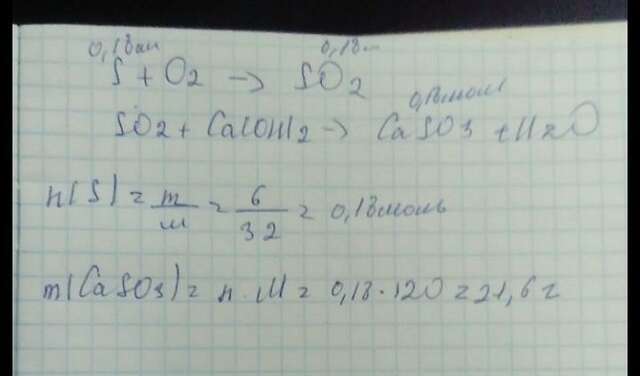 0,18 моль 0,18 м
S + O2 → SO2
0,18 моль
SO2 + Ca(OH)2 → CaSO3 + H2O
n(S) = m/M = 6/32 = 0,18 моль
m(CaSO3) = n · M = 0,18 · 120 = 21,6 г